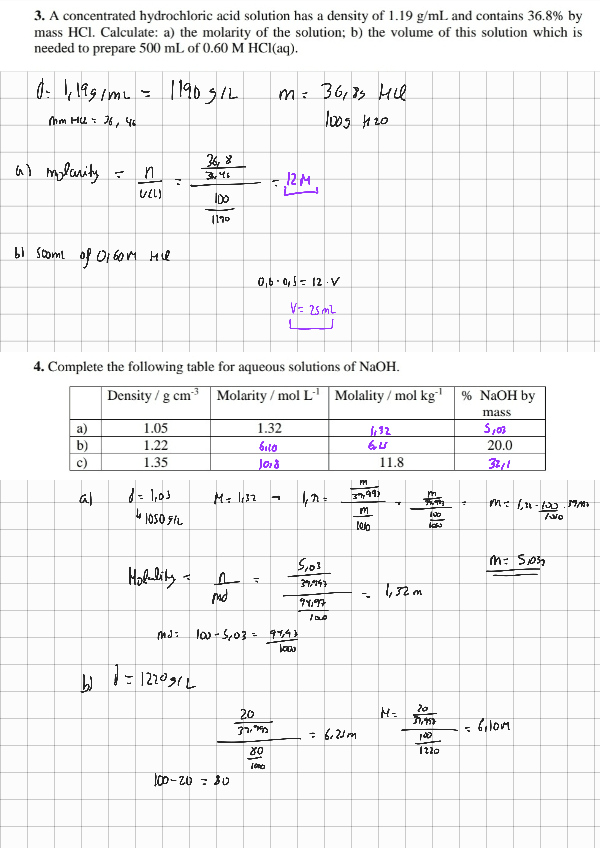 3. A concentrated hydrochloric acid solution has a density of 1.19 g/mL and contains 36.8% by
mass HCl. Calculate: a) the molarity of the solution; b) the volume of this solution which is
needed to prepare 500 mL of 0.60 M HCl(aq).
d= 1,19g/mL = 1190 g/L m= 36,8g HCl
mm HCl = 36,46 100g H2O
a) molarity = n / V(L) = (36,8 / 36,46) / (100 / 1190) = 12M
b) 500mL of 0,60M HCl
0,6 · 0,5 = 12 · V
V= 25mL
4. Complete the following table for aqueous solutions of NaOH.
Density / g cm⁻³ Molarity / mol L⁻¹ Molality / mol kg⁻¹ % NaOH by mass
a) 1.05 1.32 1,32 5,03
b) 1.22 6,10 6,25 20.0
c) 1.35 10,8 11.8 32,1
a) d = 1,05 M = 1,32 →
↳ 1050 g/L
m= 5,03g
Molality = n / md = (5,03 / 39,997) / (94,97 / 1000) = 1,32m
md= 100 - 5,03 = 94,97 / 1000
b) d = 1220 g/L
(20 / 39,997) / (80 / 1000) = 6,25m M= (20 / 39,997) / (100 / 1220) = 6,10M
100-20 = 80